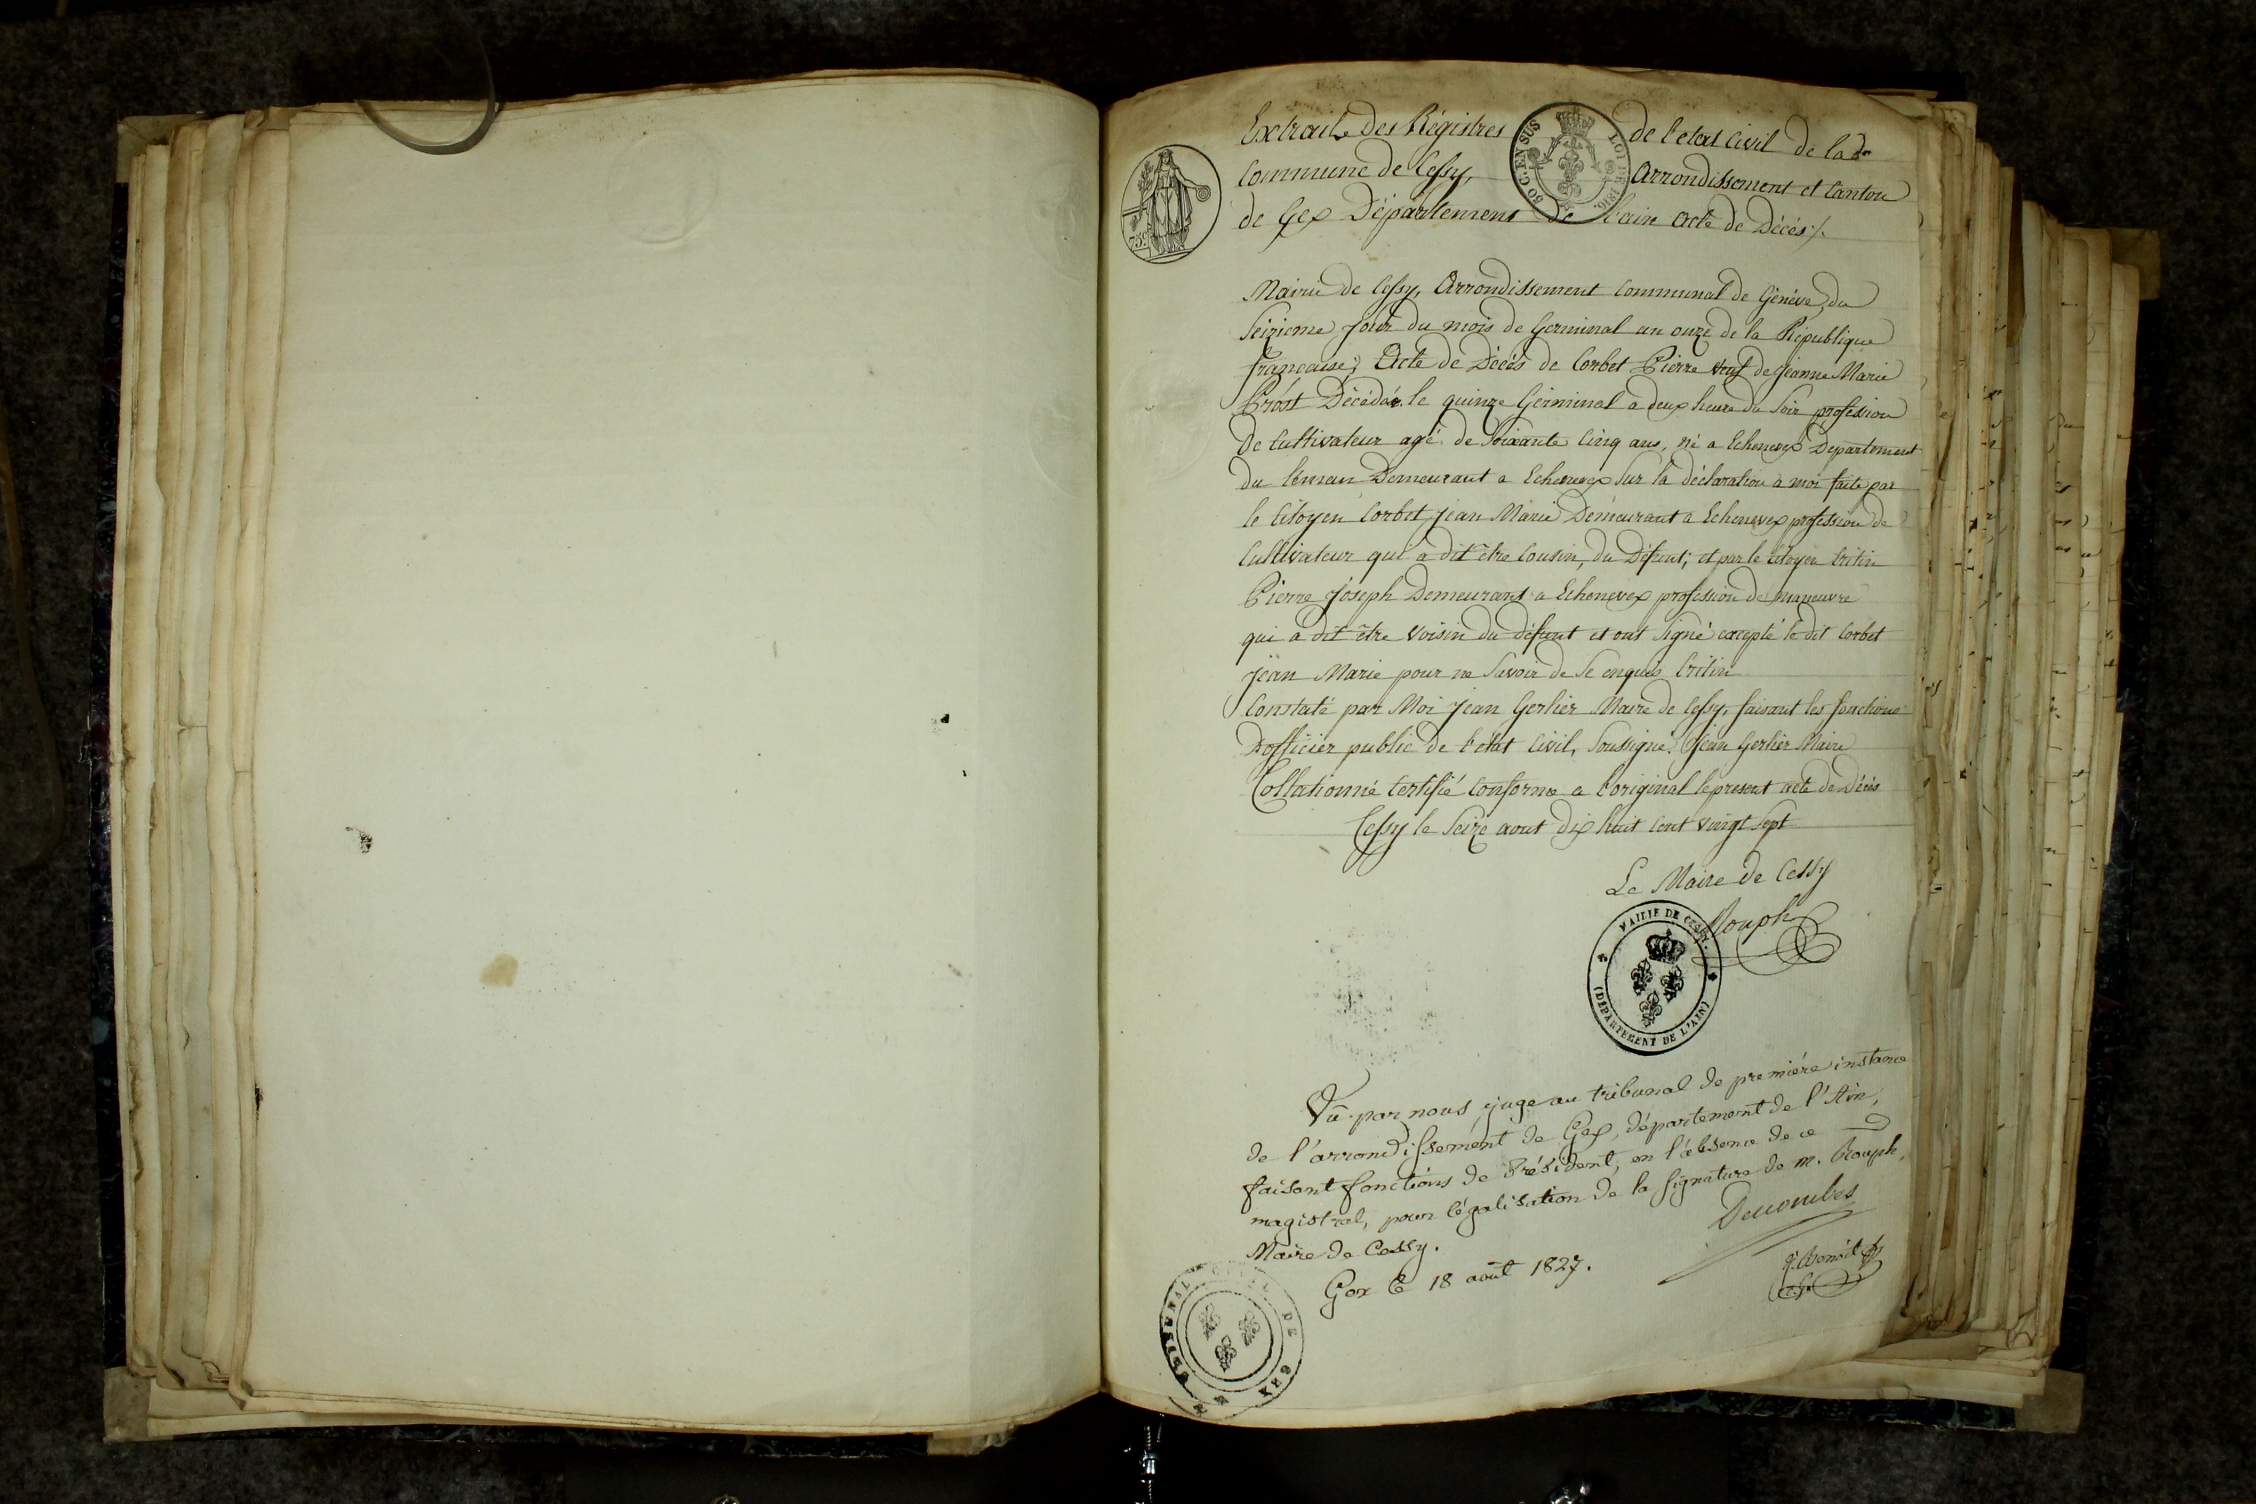 Extrait des Régistres de l'etat Civil de la
Commune de Cessy, Arrondissement et Canton
de Gex Département de l'ain acte de Décés /.
50 C. EN SUS
LOI DE 1816.
75c.
Mairie de Cessy, Arrondissement Communal de Génève, du
Seizieme jour du mois de Germinal an onze de la République
française; Acte de Décés de Corbet Pierre veuf de jeanne Marie
Prost Décédé le quinze Germinal a deux heure du Soir profession
De Cultivateur agé de Soixante Cinq ans, né a Echenevex Departement
du léman Demeurant a Echenevex Sur la déclaration à moi faite par
le Citoyen Corbet jean Marie Demeurant a Echenevex profession de
Cultivateur qui a dit être Cousin, du Défunt; et par le Citoyen Critin
Pierre joseph Demeurant a Echenevex profession de maneuvre
qui a dit être voisin du défunt et ont Signé excepté le dit Corbet
jean Marie pour ne Savoir de Ce enquis Critin
Constaté par Moi jean Gerlier Maire de Cessy, faisant les fonctions
D'officier public de l'état Civil, Soussigné. jean Gerlier Maire
Collationné Certifié Conforme a l'original le present acte de Décés
Cessy le Seize aout dix huit Cent vingt sept
Le Maire de Cessy
Rouph
MAIRIE DE CESSY.
(DEPARTEMENT DE L'AIN)
Vû par nous juge au tribunal de première instance
de l'arrondissement de Gex, département de l'Ain,
faisant fonctions de Président, en l'absence de ce
magistrat, pour légalisation de la signature de m. Rouph,
Maire de Cessy.
Gex le 18 août 1827.
TRIBUNAL CIVIL DE GEX